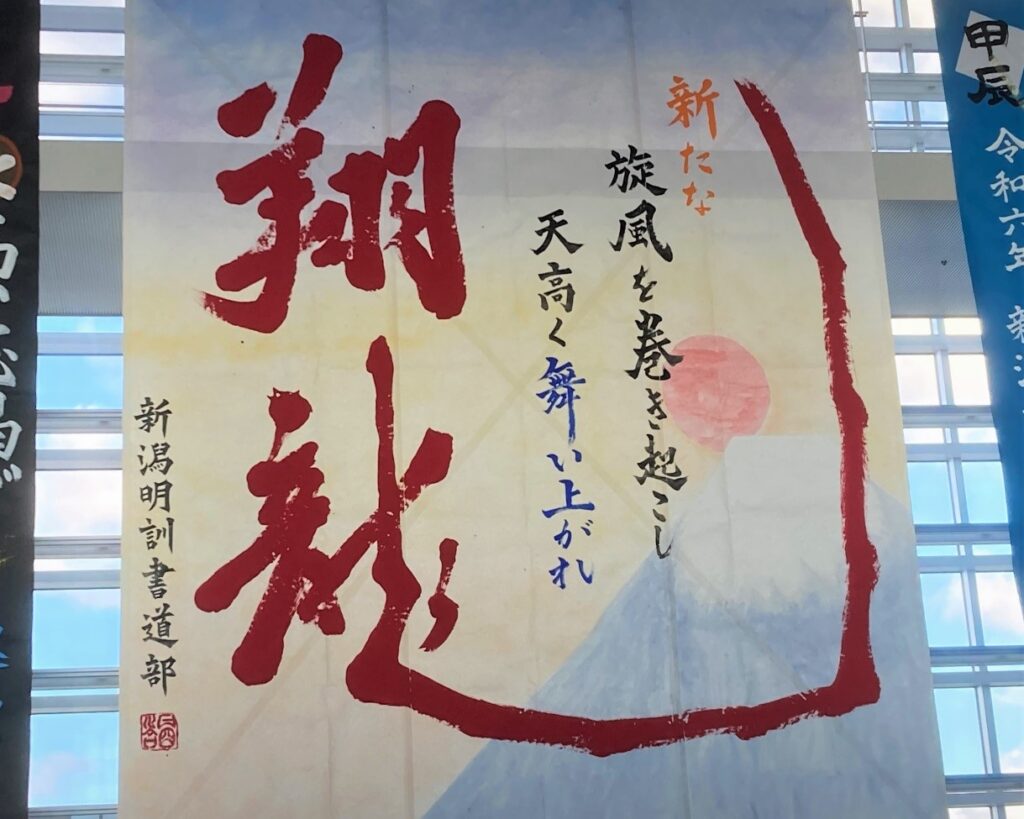 甲辰
令和六年 新潟
新たな
旋風を巻き起こし
天高く舞い上がれ
翔龍
新潟明訓書道部